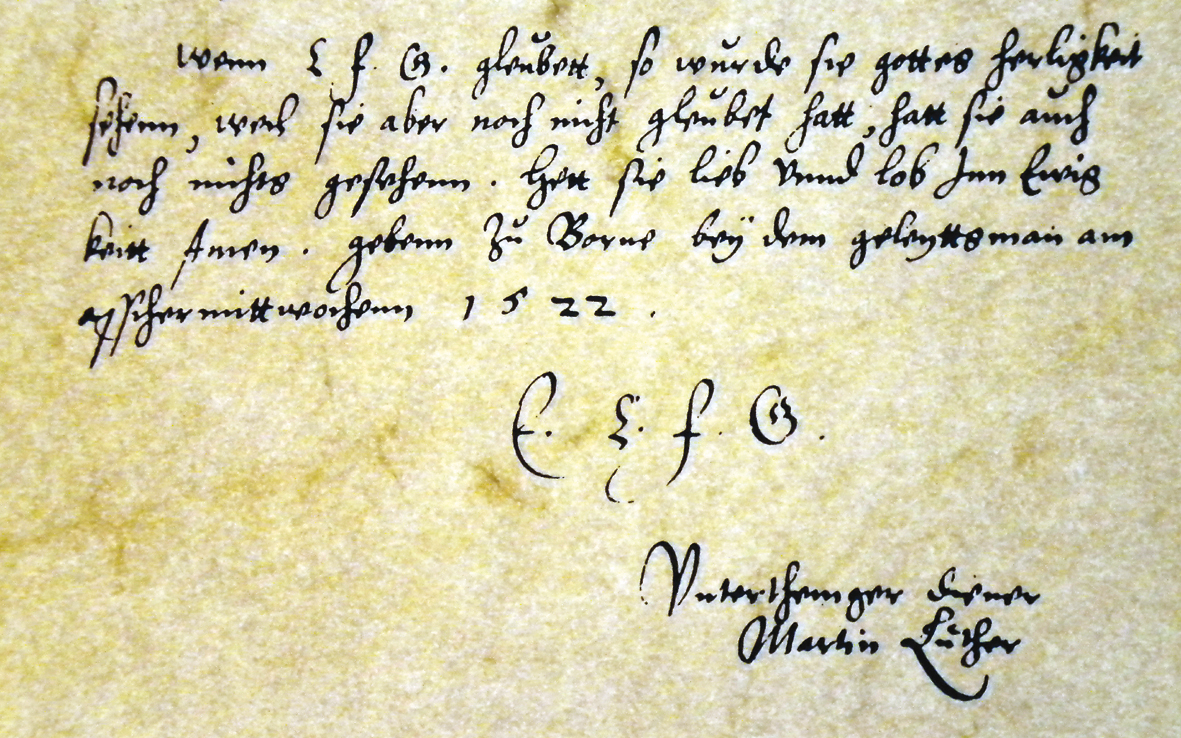 wenn E f. G. gleubett, so wurde sie gottes herligkeit
sehenn, weyl sie aber noch nicht gleubet hatt, hatt sie auch
noch nichts gesehenn. Gott sey lieb vnnd lob Inn Ewig
keitt Amen. gebenn Zu Borne bey dem geleyttsman am
asschermittwochenn 1522.
E. k. f. G.
Vntertheniger diener
Martin Luther